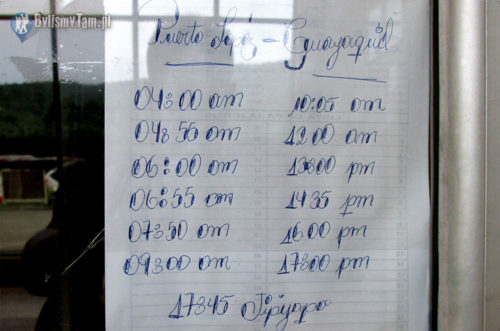 ByliśmyTam.pl
Puerto López - Guayaquil
04:00 am 10:05 am
04:55 am 12:00 am
06:00 am 13:00 pm
06:55 am 14:35 pm
07:50 am 16:00 pm
09:00 am 17:00 pm
17:45